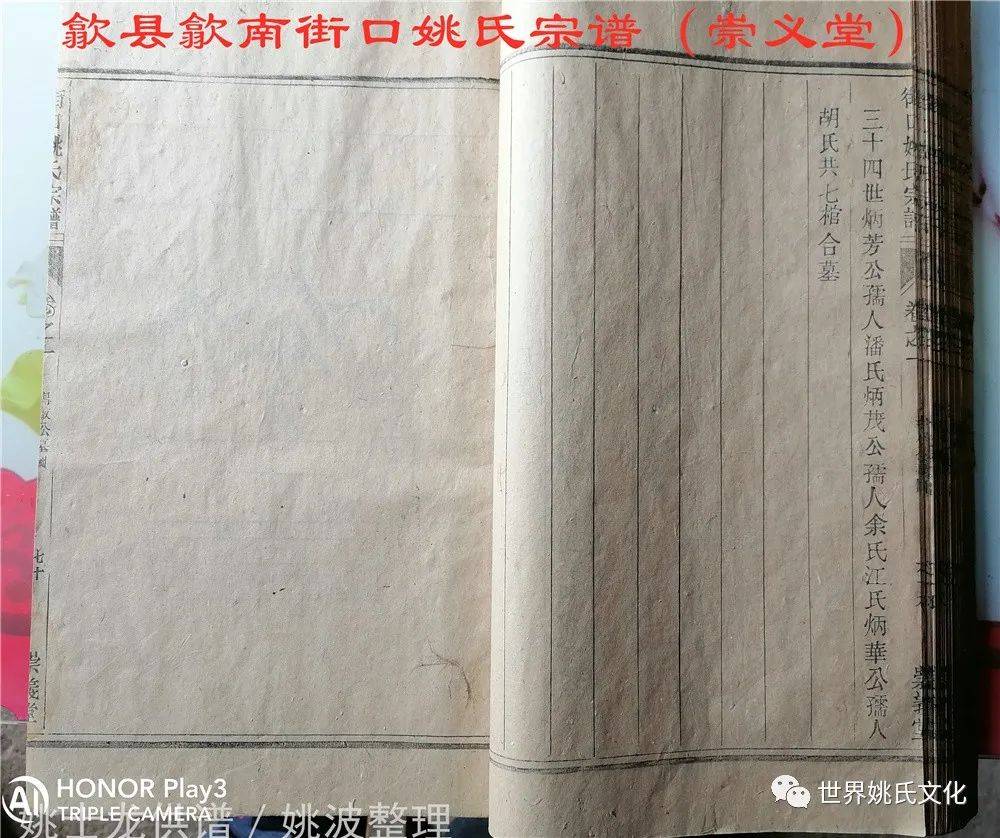 歙县歙南街口姚氏宗谱（崇义堂）
三十四世炳芳公孺人潘氏炳茂公孺人余氏江氏炳華公孺人
胡氏共七棺合墓
街口姚氏宗譜
卷之一
街口姚氏宗譜
卷之一
七十
崇義堂
崇義堂
HONOR Play3
TRIPLE CAMERA
AI
姚士龙供谱/姚波整理
世界姚氏文化